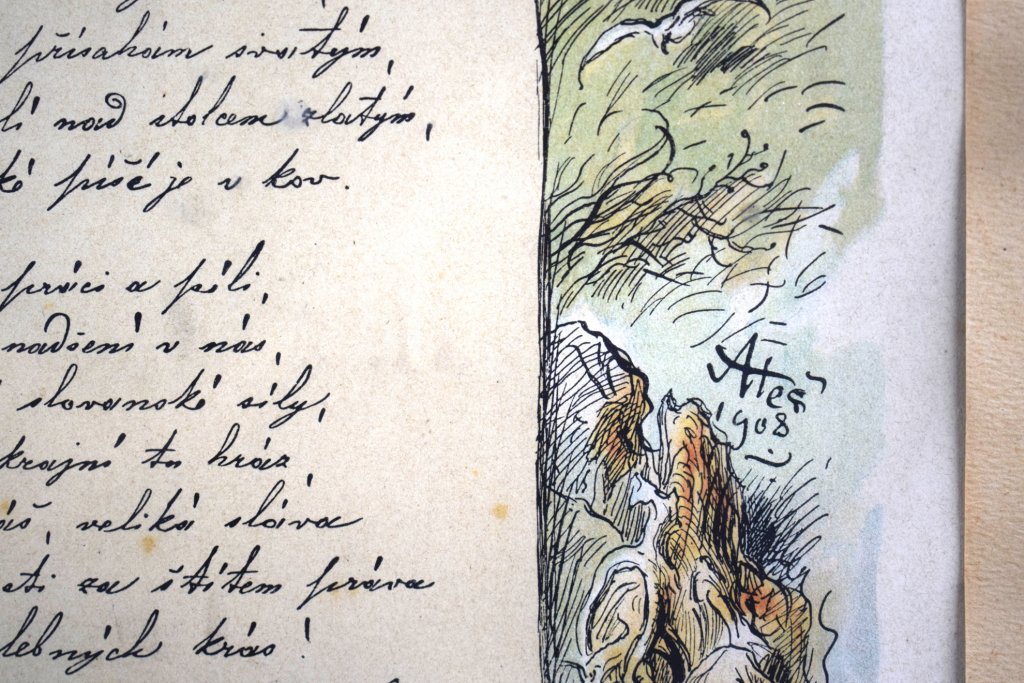 přísahám svatým,
lí nad stolcem zlatým,
ké píšé je v kov.
práci a píli,
nadšení v nás,
slovanské síly,
krajní tu hráz
áš, veliká sláva
eti za štítem práva
lebných krás!
Aleš
1908